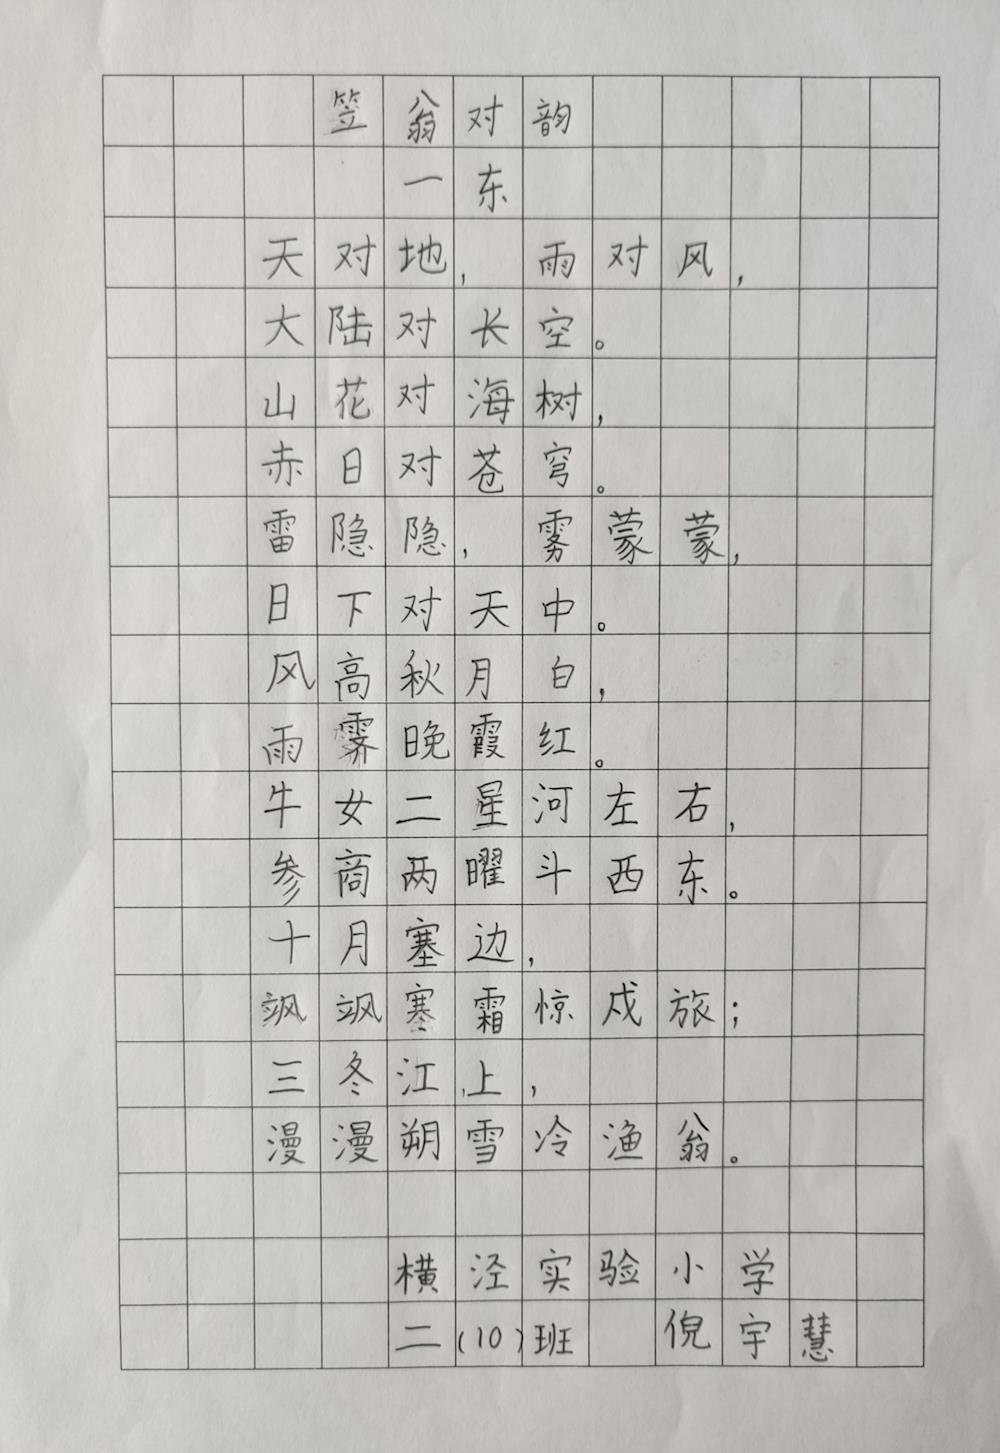 笠翁对韵
一东
天对地,雨对风,
大陆对长空。
山花对海树,
赤日对苍穹。
雷隐隐,雾蒙蒙,
日下对天中。
风高秋月白,
雨霁晚霞红。
牛女二星河左右,
参商两曜斗西东。
十月塞边,
飒飒寒霜惊戍旅;
三冬江上,
漫漫朔雪冷渔翁。
横泾实验小学
二(10)班 倪宇慧